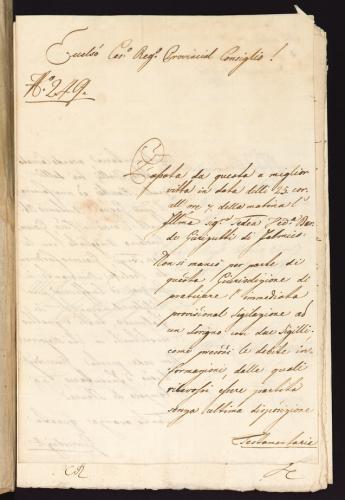 Eccelso Ces.º Reg.º Provincial Consiglio!
Nº 249.
da questa a miglior
vitta in data delli 23 cor.
all ore 7 della matina l'
Illma Sig.ª Ved.ª Bar.
de
Non si mancò per parte di
questa Giurisdizione di
praticare l'immediata
provisional Sigilazione ad
un Scrigno con due Sigilli
come precisi le debite in-
formazioni, dalle quali
rilevossi essere partita
senza l'ultima disposizione
Testamentaria